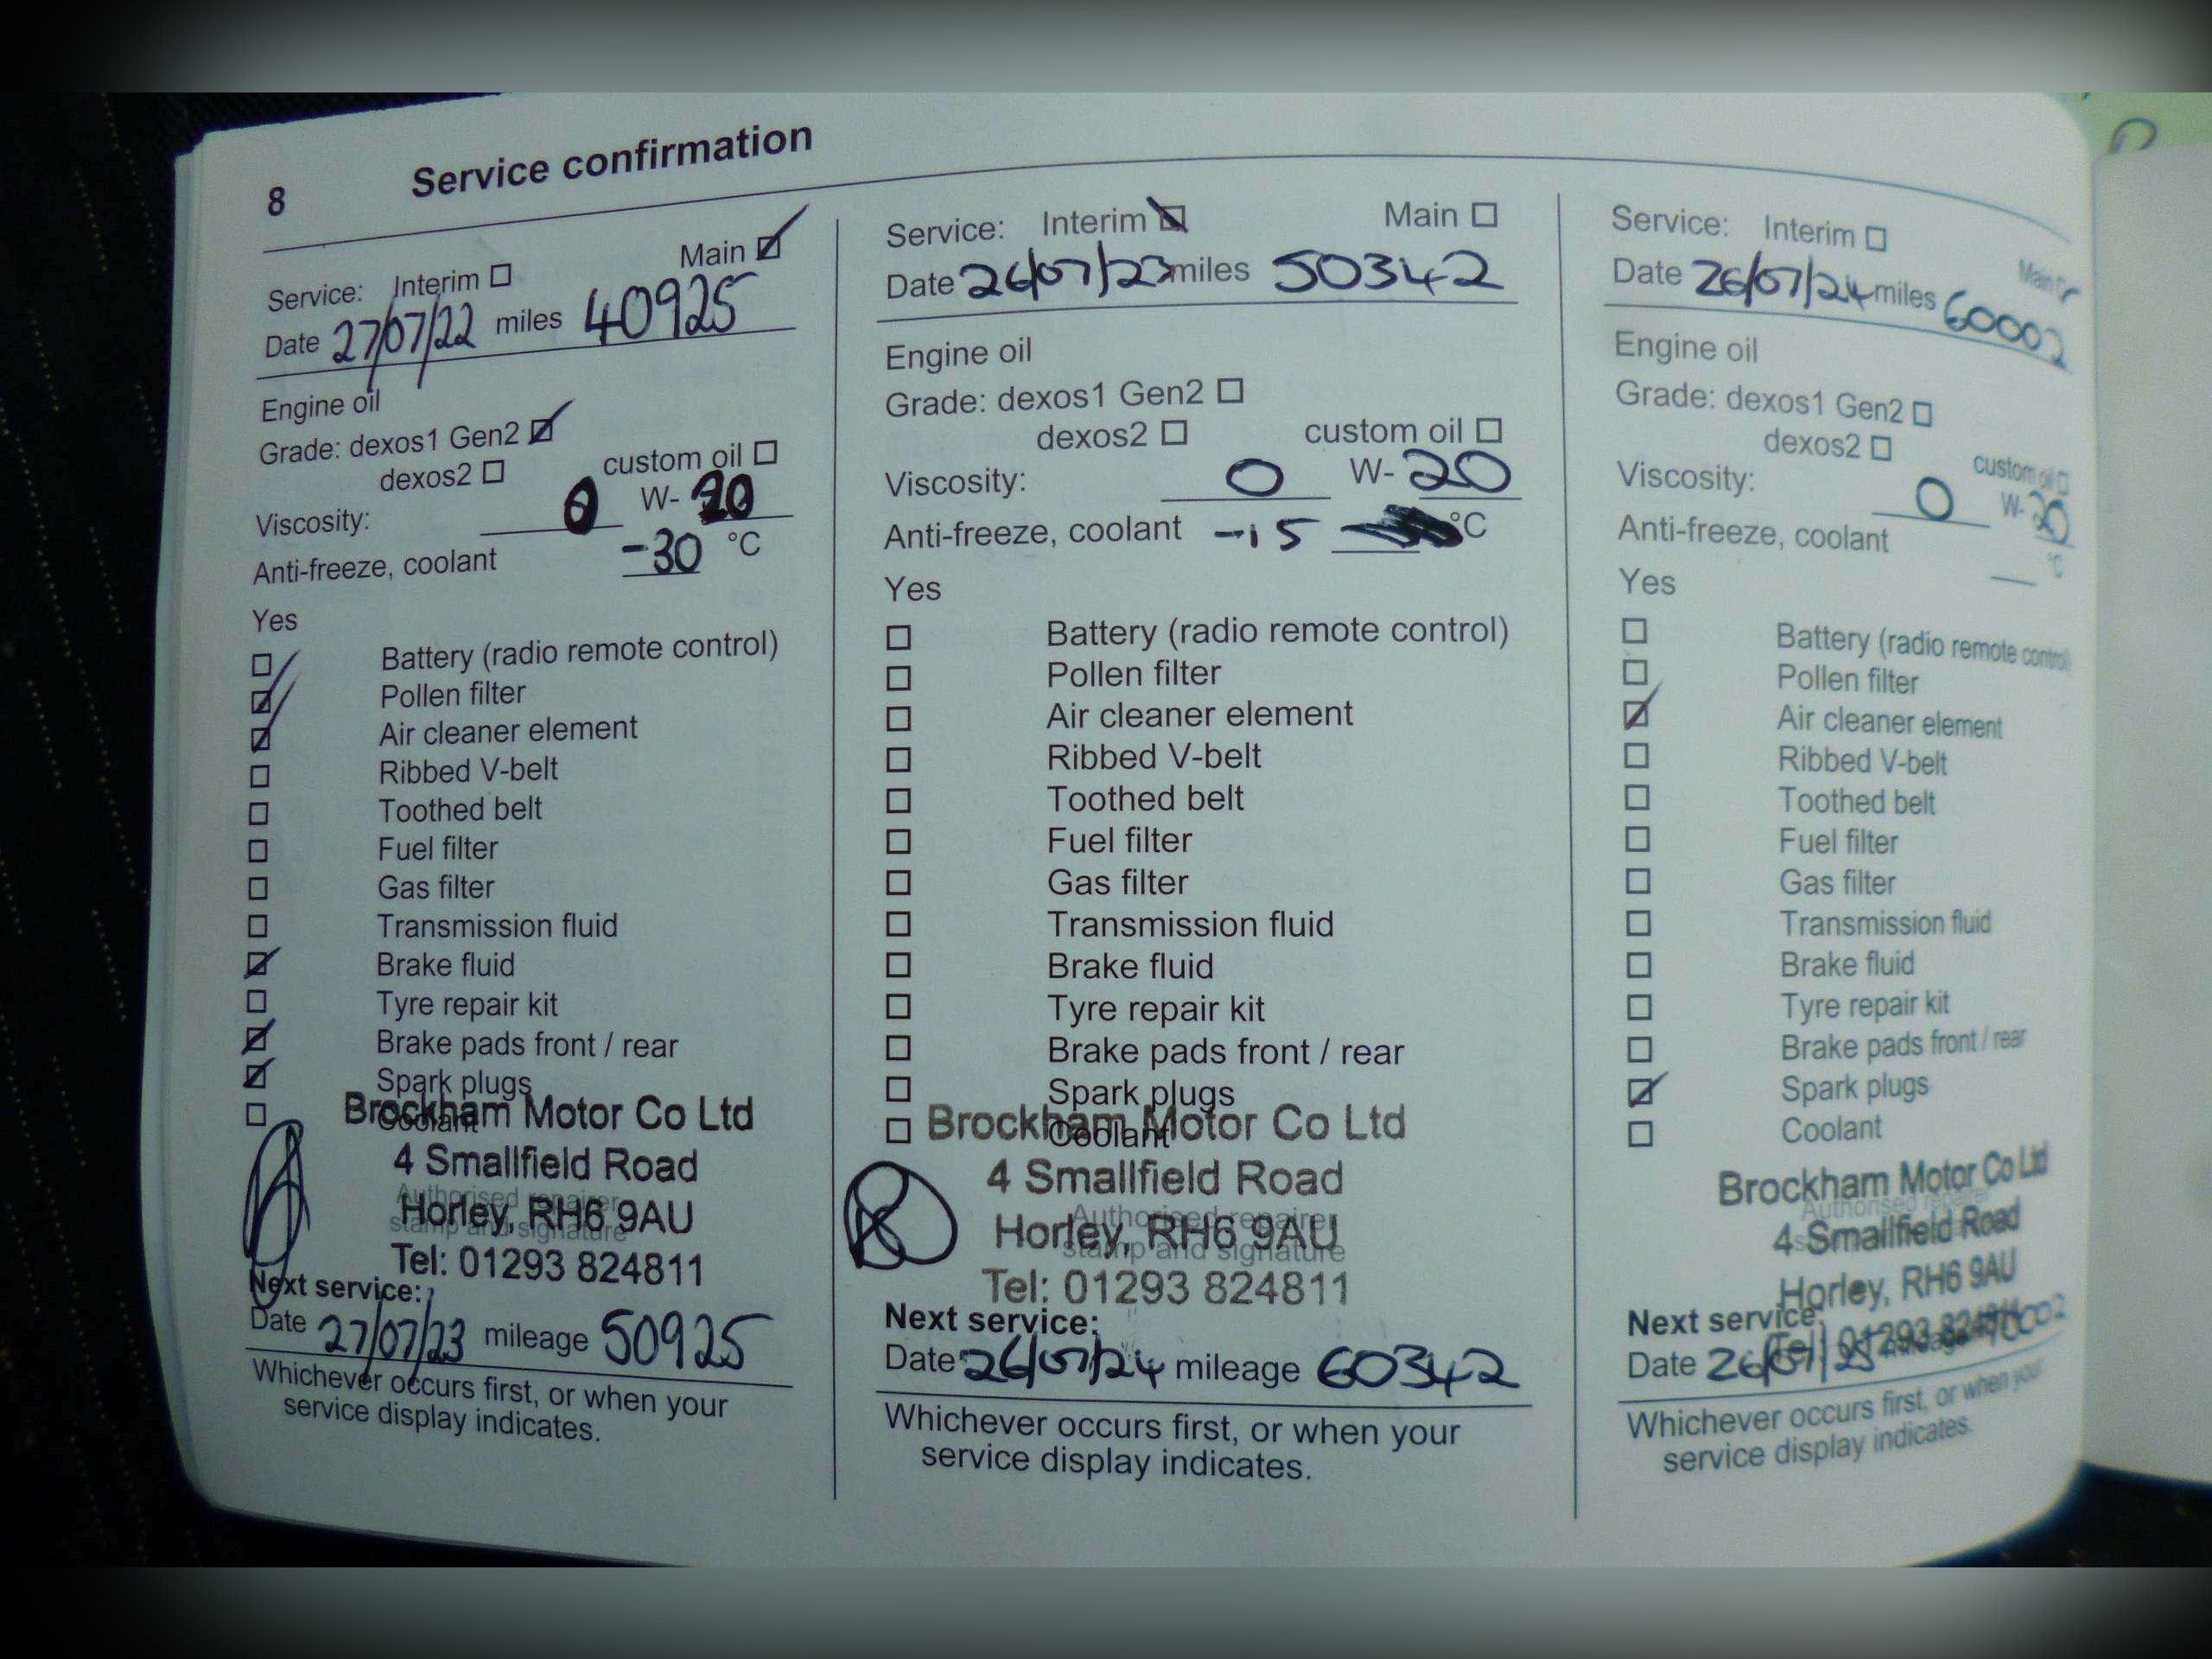 8 Service confirmation
Service: Interim Main
Date 27/07/22 miles 40925
Engine oil
Grade: dexos1 Gen2
dexos2 custom oil
Viscosity: 0 W-20
Anti-freeze, coolant -30 °C
Yes
Battery (radio remote control)
Pollen filter
Air cleaner element
Ribbed V-belt
Toothed belt
Fuel filter
Gas filter
Transmission fluid
Brake fluid
Tyre repair kit
Brake pads front / rear
Spark plugs
Coolant
Brockham Motor Co Ltd
4 Smallfield Road
Authorised repairer
Horley, RH6 9AU
stamp and signature
Tel: 01293 824811
Next service:
Date 27/07/23 mileage 50925
Whichever occurs first, or when your
service display indicates.
Service: Interim Main
Date 26/07/23 miles 50342
Engine oil
Grade: dexos1 Gen2
dexos2 custom oil
Viscosity: 0 W-20
Anti-freeze, coolant -15 °C
Yes
Battery (radio remote control)
Pollen filter
Air cleaner element
Ribbed V-belt
Toothed belt
Fuel filter
Gas filter
Transmission fluid
Brake fluid
Tyre repair kit
Brake pads front / rear
Spark plugs
Coolant
Brockham Motor Co Ltd
4 Smallfield Road
Authorised repairer
Horley, RH6 9AU
stamp and signature
Tel: 01293 824811
Next service:
Date 26/07/24 mileage 60342
Whichever occurs first, or when your
service display indicates.
Service: Interim Main
Date 26/07/24 miles 60002
Engine oil
Grade: dexos1 Gen2
dexos2 custom oil
Viscosity: 0 W-20
Anti-freeze, coolant °C
Yes
Battery (radio remote control)
Pollen filter
Air cleaner element
Ribbed V-belt
Toothed belt
Fuel filter
Gas filter
Transmission fluid
Brake fluid
Tyre repair kit
Brake pads front / rear
Spark plugs
Coolant
Brockham Motor Co Ltd
Authorised repairer
4 Smallfield Road
Horley, RH6 9AU
Tel: 01293 824811
Next service:
Date 26/07/25 mileage 70002
Whichever occurs first, or when your
service display indicates.